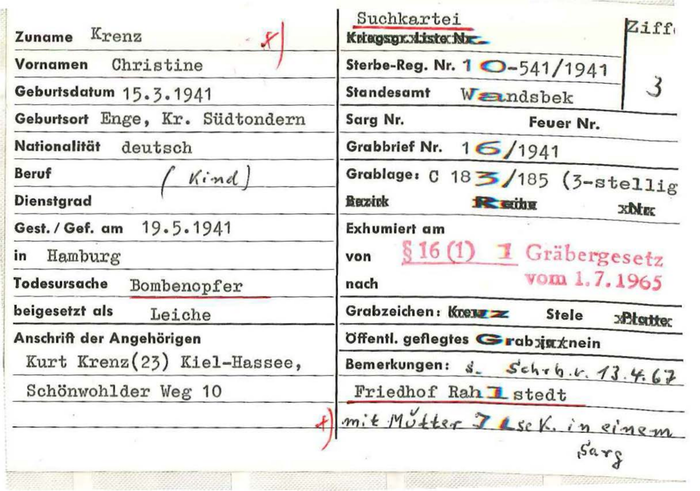 Zuname Krenz
Vornamen Christine
Geburtsdatum 15.3.1941
Geburtsort Enge, Kr. Südtondern
Nationalität deutsch
Beruf (Kind)
Dienstgrad
Gest./Gef. am 19.5.1941
in Hamburg
Todesursache Bombenopfer
beigesetzt als Leiche
Anschrift der Angehörigen
Kurt Krenz(23) Kiel-Hassee,
Schönwohlder Weg 10
Suchkartei
Kriegsgr. Liste Nr.
Ziff
3
Sterbe-Reg. Nr. 10-541/1941
Standesamt Wandsbek
Sarg Nr. Feuer Nr.
Grabbrief Nr. 16/1941
Grablage: C 183/185 (3-stellig
Bezirk Reihe Nr.
Exhumiert am
von § 16 (1) 1 Gräbergesetz
nach vom 1.7.1965
Grabzeichen: Kreuz Stele Platte
Öffentl. gepflegtes Grab: ja/nein
Bemerkungen: s. Schrb. v. 13.4.67
Friedhof Rahlstedt
mit Mutter K. in einem
Sarg